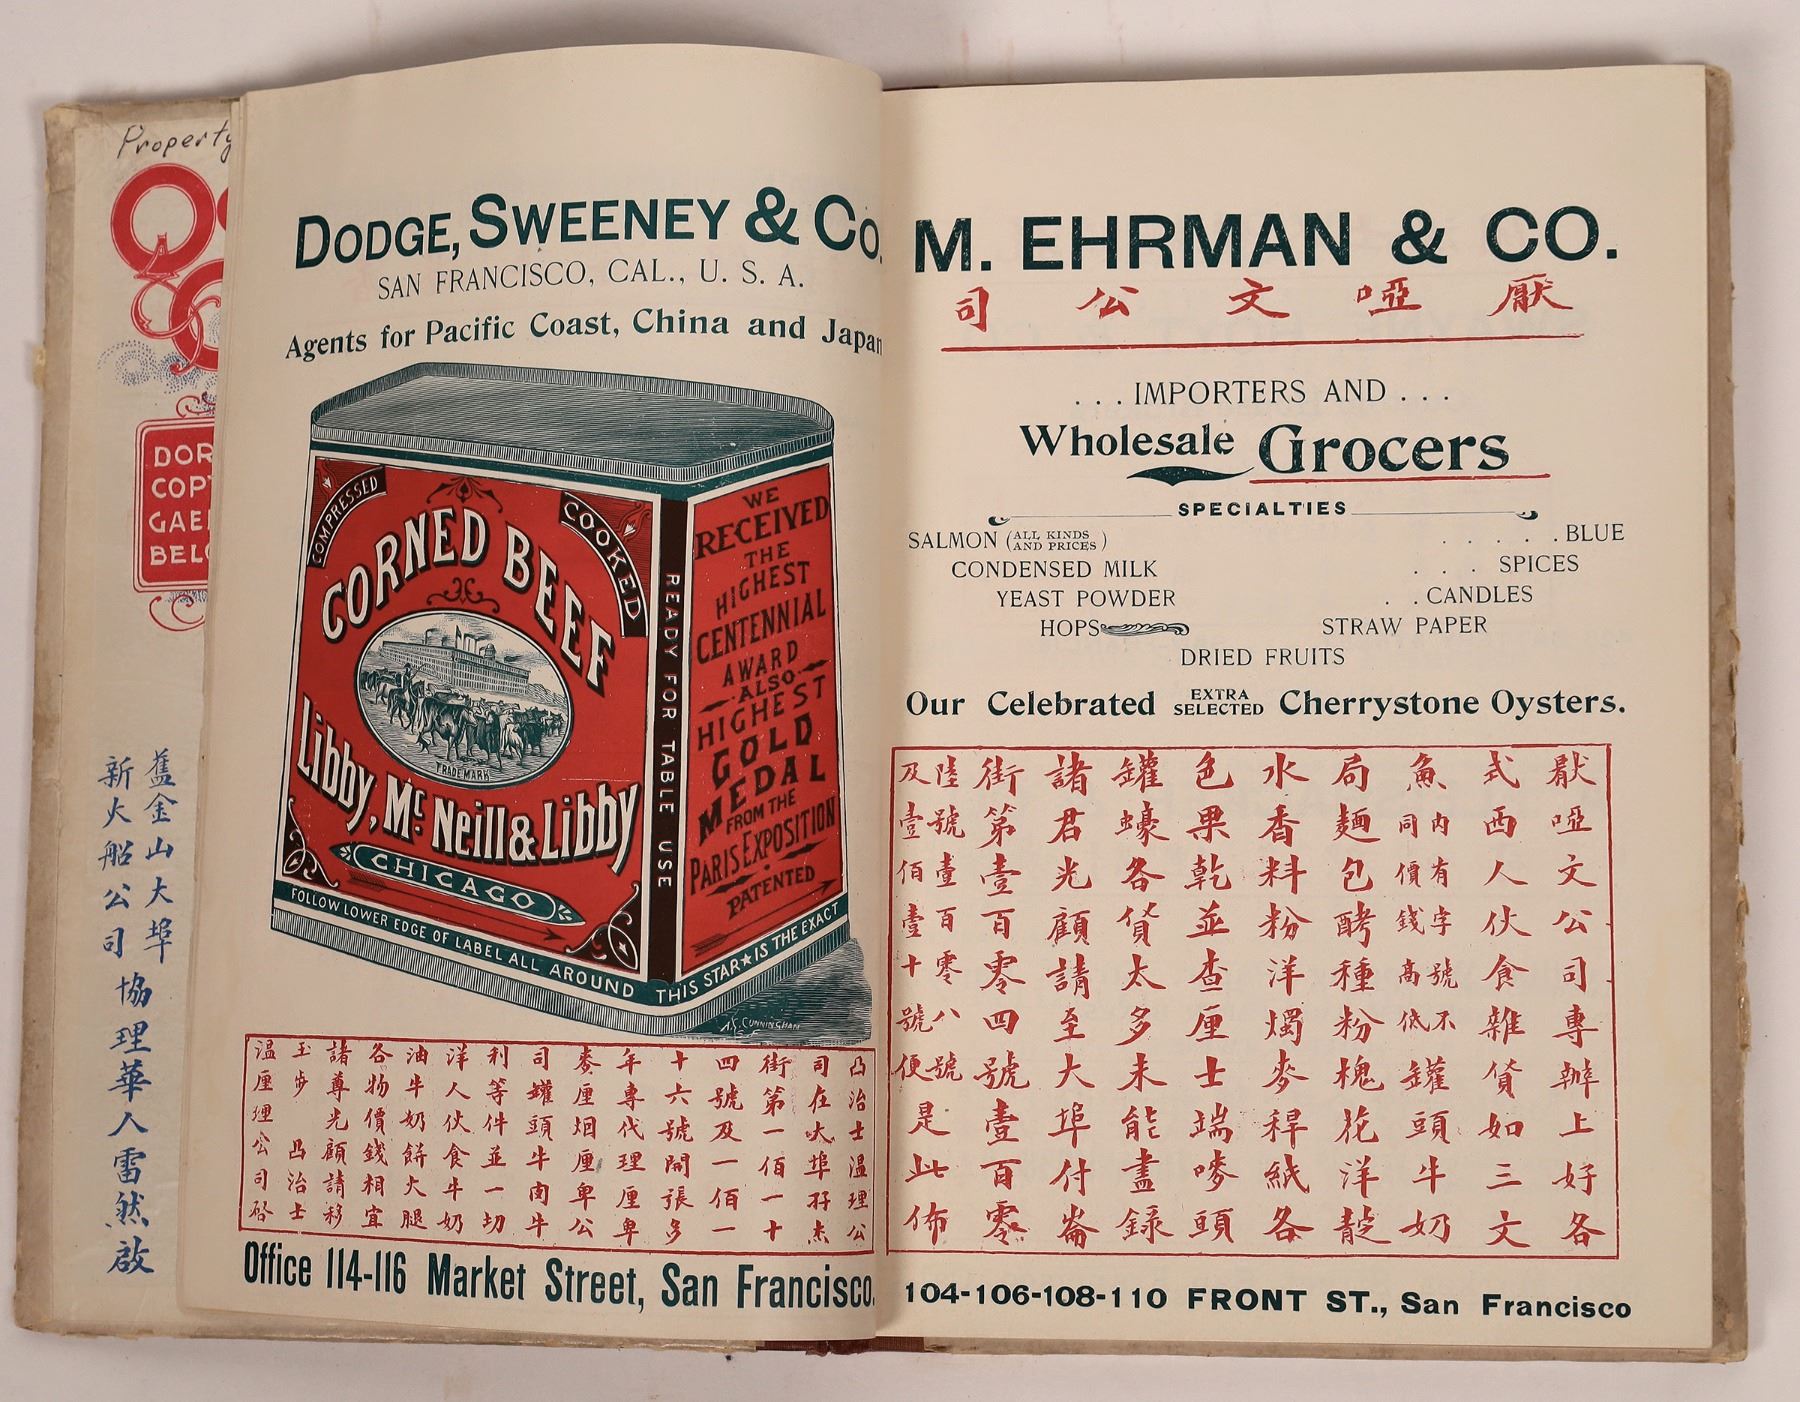 Property
DOR
COP
GAE
BEL
舊金山大埠
新火船公司
協理華人雷然啟
DODGE, SWEENEY & CO.
SAN FRANCISCO, CAL., U. S. A.
Agents for Pacific Coast, China and Japan
COMPRESSED
COOKED
CORNED BEEF
TRADEMARK
Libby, McNeill & Libby
CHICAGO
FOLLOW LOWER EDGE OF LABEL ALL AROUND
READY FOR TABLE USE
WE
RECEIVED
THE
HIGHEST
CENTENNIAL
AWARD
ALSO
HIGHEST
GOLD
MEDAL
FROM THE
PARIS EXPOSITION
PATENTED
THIS STAR★IS THE EXACT
A.S. CUNNINGHAM
S.F.
凸治士温理公
司在大埠孖杰
街第一佰一十
四號及一佰一
十六號開張多
年專代理厘卑
麥厘烟厘卑公
司罐頭牛肉牛
利等件並一切
洋人伙食牛奶
油牛奶餅火腿
各物價錢相宜
諸尊光顧請移
玉步 凸治士
温厘理公司啓
Office 114-116 Market Street, San Francisco.
M. EHRMAN & CO.
司公文啞厭
...IMPORTERS AND...
Wholesale Grocers
SPECIALTIES
SALMON (ALL KINDS AND PRICES) . . . . . BLUE
CONDENSED MILK . . . SPICES
YEAST POWDER . . CANDLES
HOPS STRAW PAPER
DRIED FRUITS
Our Celebrated EXTRA SELECTED Cherrystone Oysters.
厭啞文公司專辦上好各
式西人伙食雜貨如三文
魚內有字號不同價錢高低罐頭牛奶
局麵包酵種粉槐花洋靛
水香料粉洋燭麥稈紙各
色果乾並查厘士端嘜頭
罐蠔各貨太多未能盡錄
諸君光顧請至大埠付崙
街第壹百零四號壹百零
陸號壹百零八號及壹佰壹十號便是此佈
104-106-108-110 FRONT ST., San Francisco